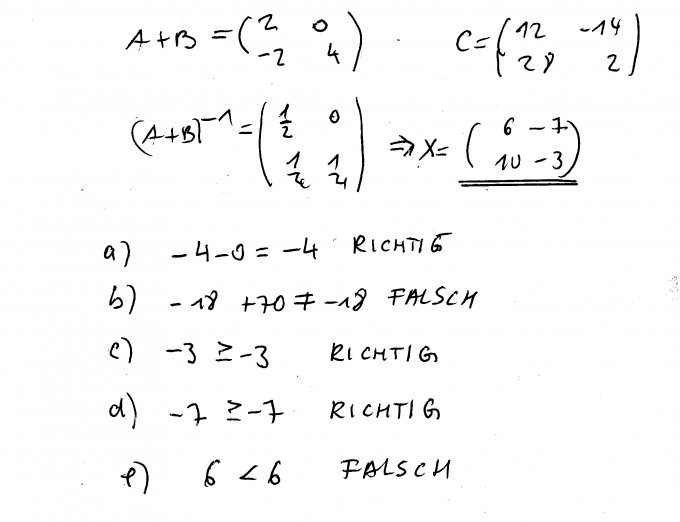 A+B = (2 0 -2 4) . C = (12 -14 28 2)
(A+B)^-1 = (1/2 0 1/4 1/4) ⇒ X = (6 -7 10 -3)
a) -4-0 = -4 RICHTIG
b) -18 +70 ≠ -18 FALSCH
c) -3 ≥ -3 RICHTIG
d) -7 ≥ -7 RICHTIG
e) 6 < 6 FALSCH